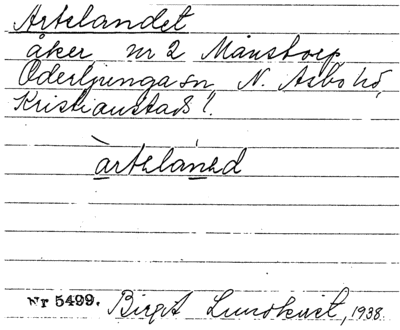 Artelandet
åker nr 2 Månstorp,
Oderljunga sn N. Åsbo hd,
Kristianstads l.
àrtelánèd
Nr 5499. Birgit Lundkvist, 1938.